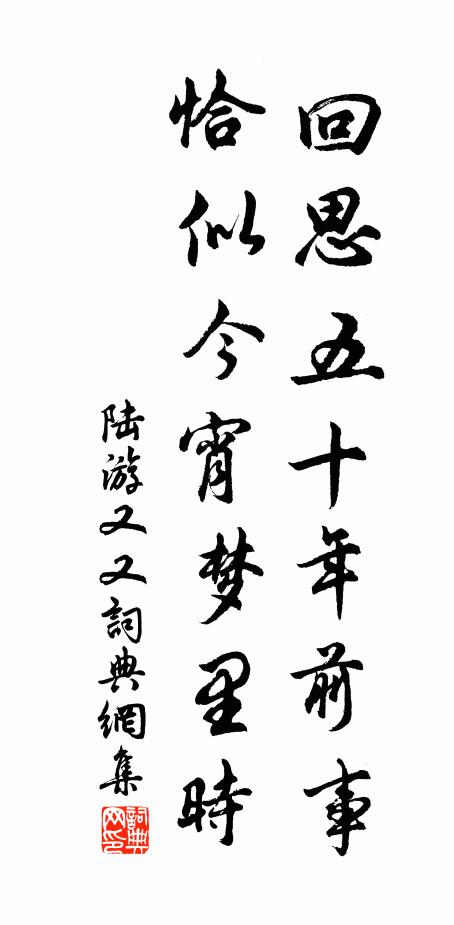 回思五十年前事
恰似今宵梦里時
陆游又又詞典網集
詞典網印